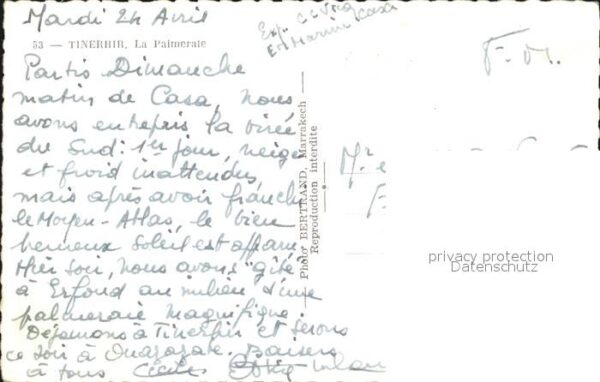 Mardi 24 Avril
53 — TINERHIR, La Palmeraie
Exp.
F. M.
Partis Dimanche
matin de Casa, nous
avons entrepris la virée
du Sud: 1er jour, neige
et froid inattendus,
mais après avoir franchi
le Moyen-Atlas, le bien
heureux soleil est apparu
Hier soir, nous avons "gîté"
à Erfoud au milieu d'une
palmeraie magnifique.
Déjeunons à Tinerhir et serons
ce soir à Ouarzazate. Baisers
à tous Cécile
Photo BERTRAND, Marrakech
Reproduction interdite
Mr e
privacy protection
Datenschutz